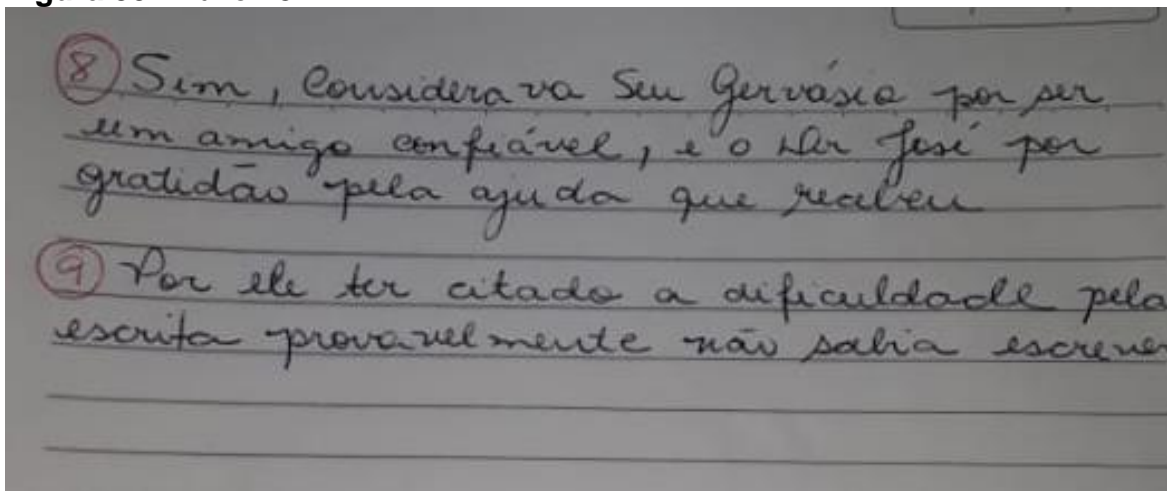 8 Sim, considerava Seu Gervásio por ser
um amigo confiável, e o José por
gratidão pela ajuda que recebeu
9 Por ele ter citado a dificuldade pela
escrita provavelmente não sabia escrever